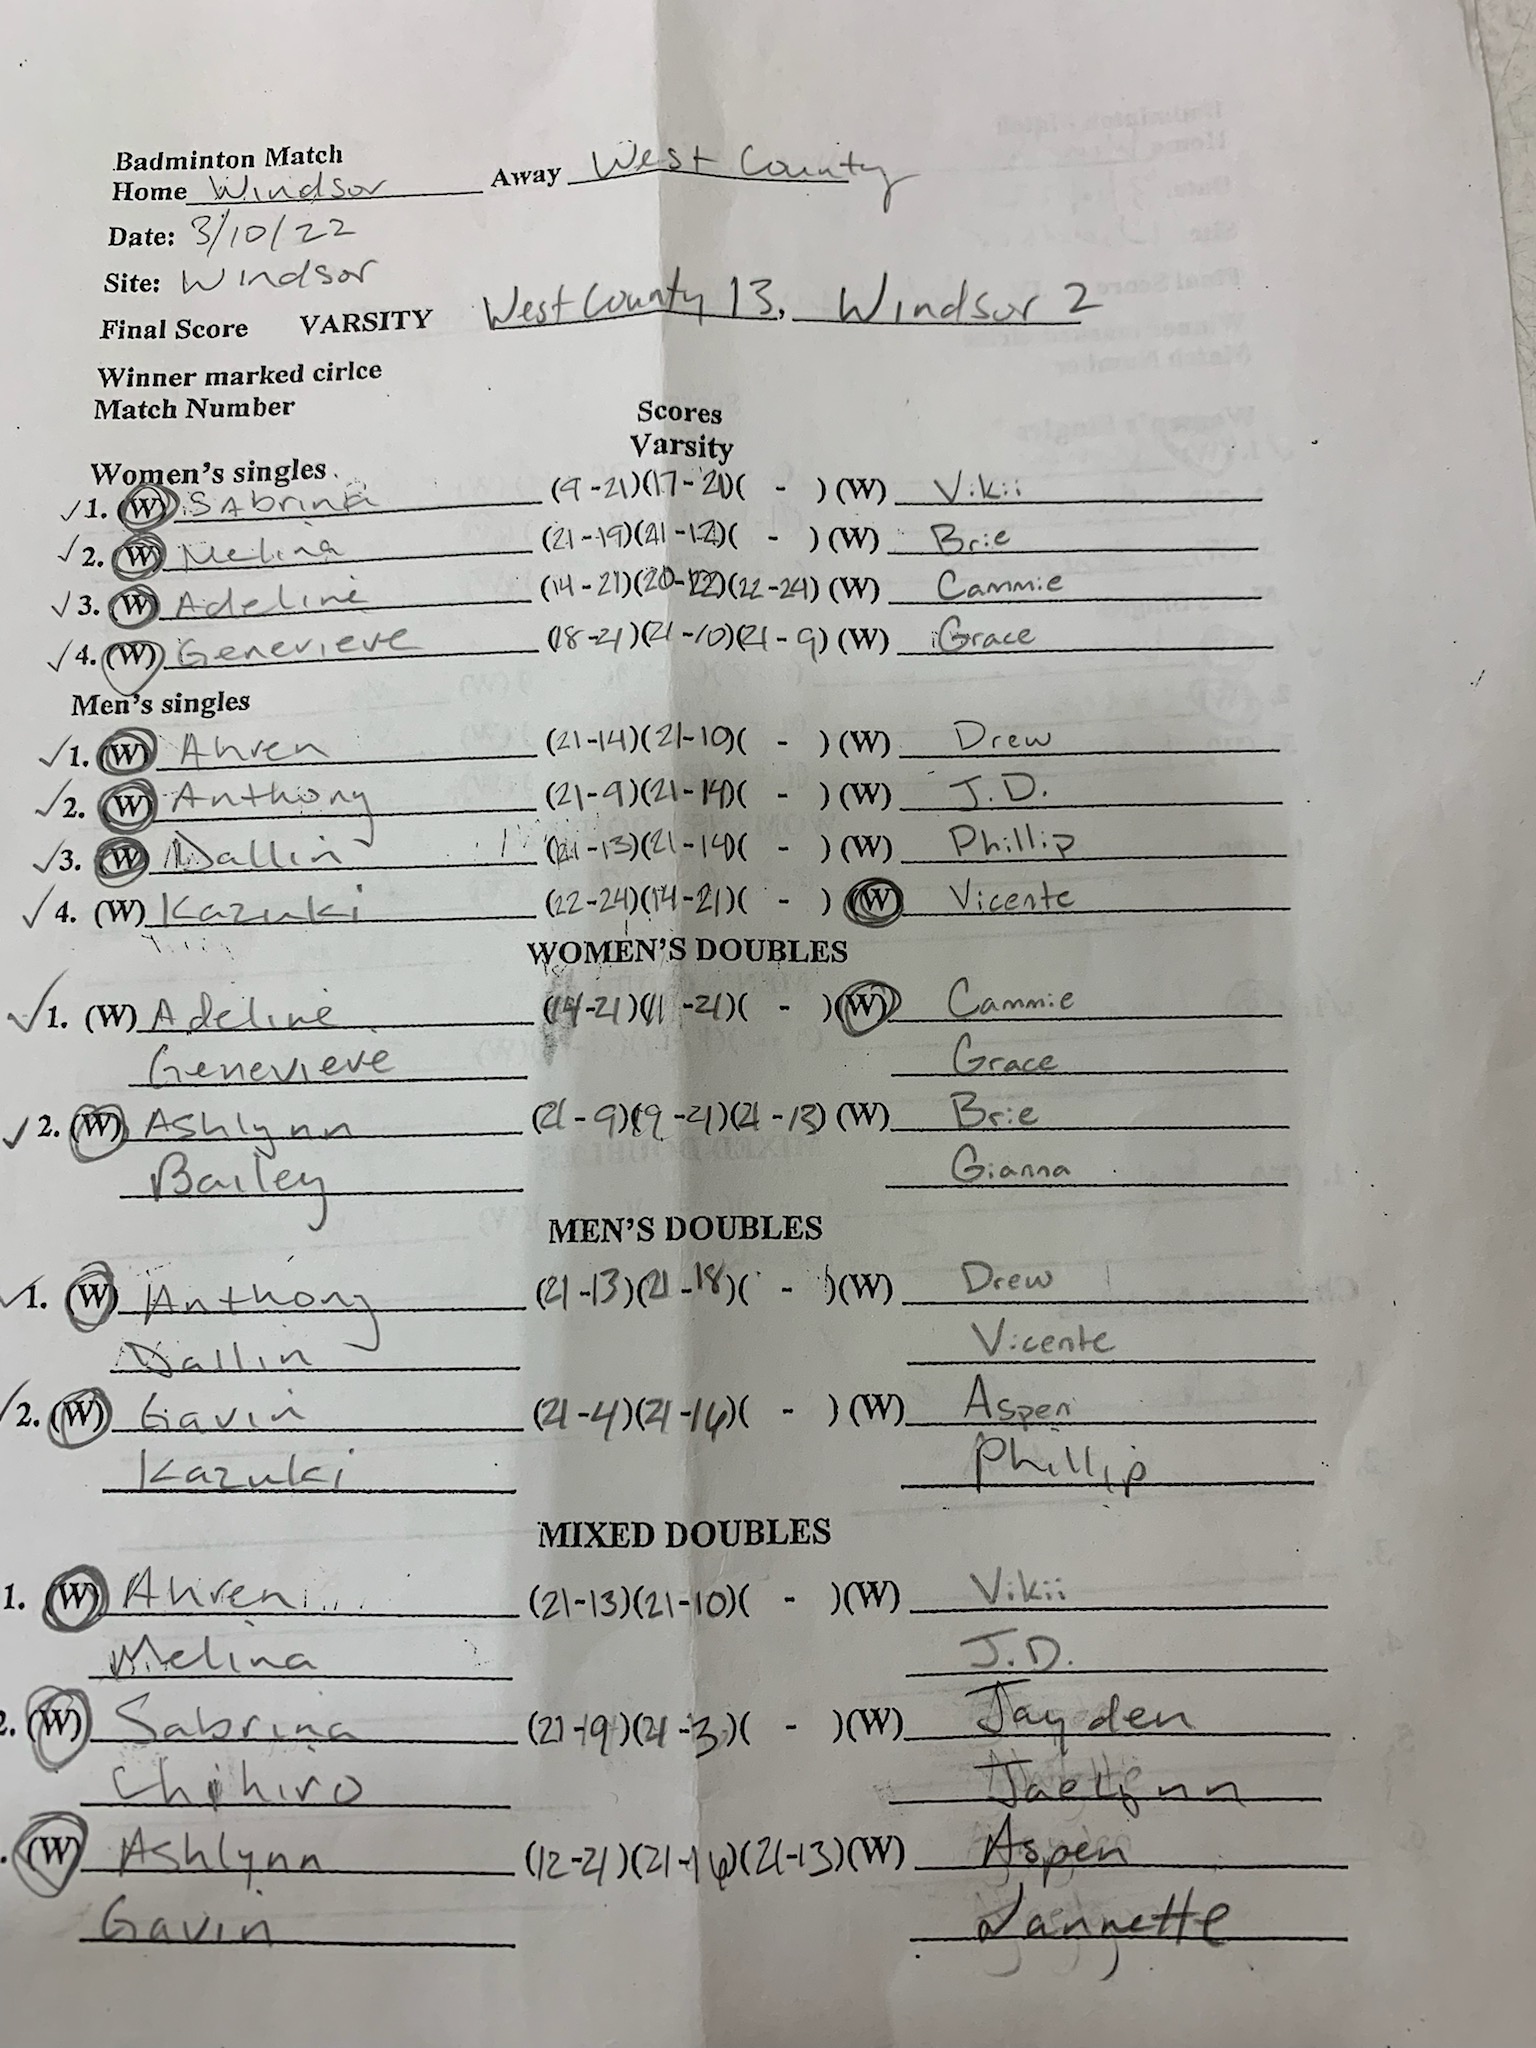 Badminton Match
Home Windsor Away West County
Date: 3/10/22
Site: Windsor
Final Score VARSITY West County 13, Windsor 2
Winner marked cirlce
Match Number Scores
Varsity
Women's singles
✓1. (W) Sabrina (9-21)(17-21)( - ) (W) Vikii
✓2. (W) Melina (21-19)(21-12)( - ) (W) Brie
✓3. (W) Adeline (14-21)(20-22)(22-24) (W) Cammie
✓4. (W) Genevieve (18-21)(21-10)(21-9) (W) Grace
Men's singles
✓1. (W) Ahren (21-14)(21-10)( - ) (W) Drew
✓2. (W) Anthony (21-9)(21-14)( - ) (W) J.D.
✓3. (W) Dallin (21-13)(21-14)( - ) (W) Phillip
✓4. (W) Kazuki (22-24)(14-21)( - ) (W) Vicente
WOMEN'S DOUBLES
✓1. (W) Adeline (14-21)(11-21)( - )(W) Cammie
Genevieve Grace
✓2. (W) Ashlynn (21-9)(9-21)(21-13) (W) Brie
Bailey Gianna
MEN'S DOUBLES
✓1. (W) Anthony (21-13)(21-18)( - )(W) Drew
Dallin Vicente
✓2. (W) Gavin (21-4)(21-16)( - ) (W) Aspen
Kazuki Phillip
MIXED DOUBLES
1. (W) Ahren (21-13)(21-10)( - )(W) Vikii
Melina J.D.
2. (W) Sabrina (21-9)(21-3)( - )(W) Jayden
Chihiro Jaelynn
. (W) Ashlynn (12-21)(21-16)(21-13)(W) Aspen
Gavin Jannette